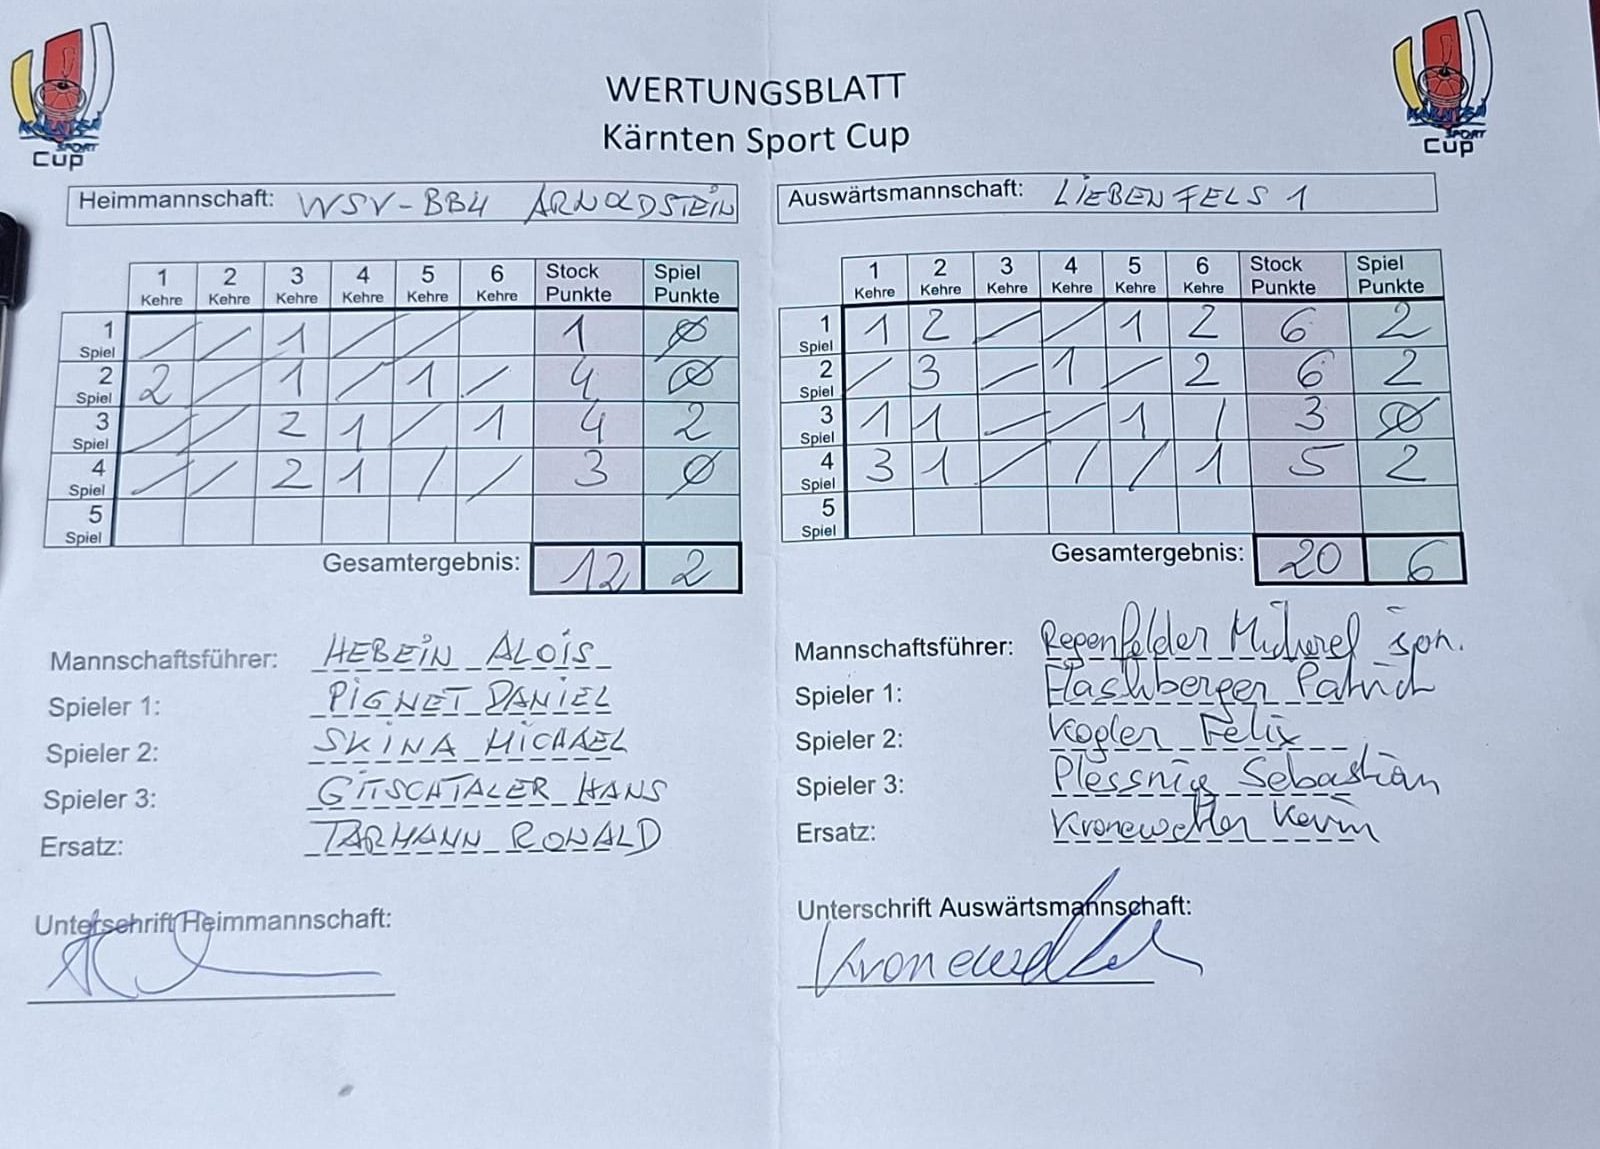 KÄRNTEN
SPORT
Cup
KÄRNTEN
SPORT
Cup
WERTUNGSBLATT
Kärnten Sport Cup
Heimmannschaft: WSV-BBU ARNOLDSTEIN
Auswärtsmannschaft: LIEBENFELS 1
1 Kehre 2 Kehre 3 Kehre 4 Kehre 5 Kehre 6 Kehre Stock Punkte Spiel Punkte
1 Spiel / / 1 / / 1 Ø
2 Spiel 2 / 1 / 1 / 4 Ø
3 Spiel / / 2 1 / 1 4 2
4 Spiel / / 2 1 / / 3 Ø
5 Spiel
Gesamtergebnis: 12 2
1 Kehre 2 Kehre 3 Kehre 4 Kehre 5 Kehre 6 Kehre Stock Punkte Spiel Punkte
1 Spiel 1 2 / / 1 2 6 2
2 Spiel / 3 / 1 / 2 6 2
3 Spiel 1 1 / / 1 / 3 Ø
4 Spiel 3 1 / / / 1 5 2
5 Spiel
Gesamtergebnis: 20 6
Mannschaftsführer: HEBEIN ALOIS
Spieler 1: PIGNET DANIEL
Spieler 2: SKINA MICHAEL
Spieler 3: GITSCHTALER HANS
Ersatz: TARMANN RONALD
Unterschrift Heimmannschaft:
Mannschaftsführer: Regenfelder Michael
Spieler 1: Flashberger Patrick
Spieler 2: Kogler Felix
Spieler 3: Plessnig Sebastian
Ersatz: Kronewetter Kevin
Unterschrift Auswärtsmannschaft: